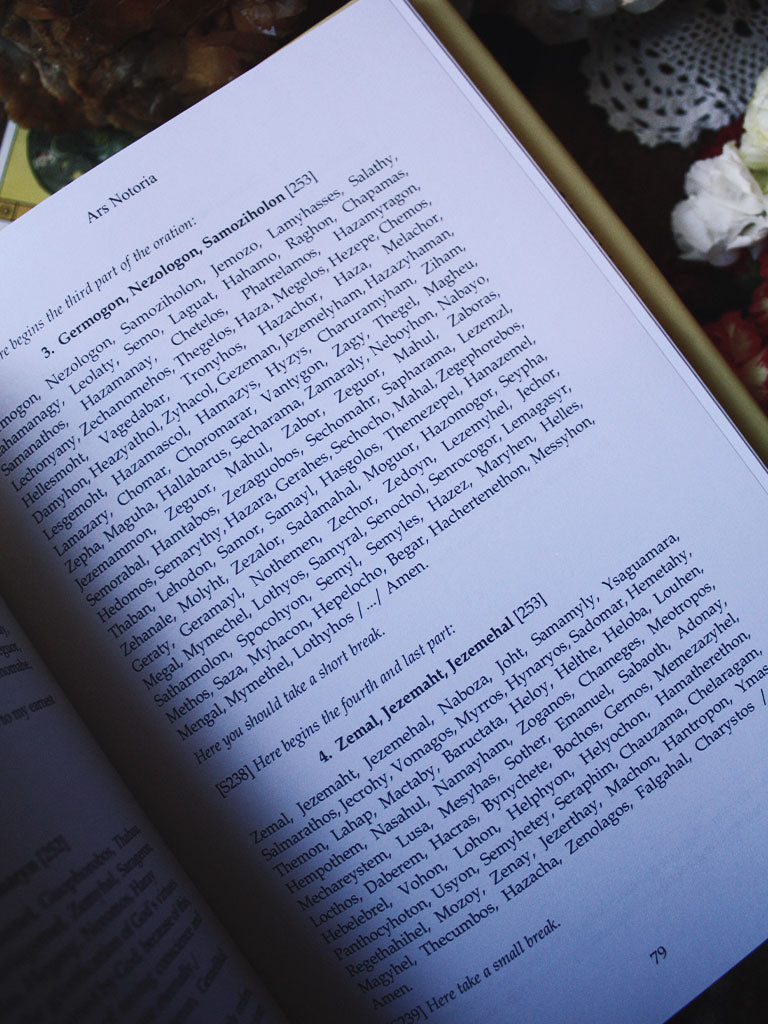 Ars Notoria
begins the third part of the oration:
3. Germogon, Nezologon, Samoziholon [253]
Nezologon, Samoziholon, Jemozo, Lamyhasses, Salathy,
Leolaty, Semo, Laguat, Hahamo, Raghon, Chapamas,
Samanathos, Hazamanay, Chetelos, Phatrelamos, Hazamyragon,
Lechonyany, Zechanomehos, Thegelos, Haza, Megelos, Hezepe, Chemos,
Hellesmoht, Vagedabar, Tronyhos, Hazachor, Haza, Melachor,
Damyhon, Heazyathol, Zyhacol, Gezeman, Jezemelyham, Hazazyhaman,
Lesgemoht, Hazamascol, Hamazys, Hyzys, Charuramyham, Ziham,
Lamazary, Chomar, Choromarar, Vantygon, Zagy, Thegel, Magheu,
Zepha, Maguha, Hallabarus, Secharama, Zamaraly, Neboyhon, Nabayo,
Jezemammon, Zeguor, Mahul, Zabor, Zeguor, Mahul, Zaboras,
Semorabal, Hamtabos, Zezaguobos, Sechomahr, Sapharama, Lezemzl,
Hedomos, Semarythy, Hazara, Gerahes, Sechocho, Mahal, Zegephorebos,
Thaban, Lehodon, Samor, Samayl, Hasgolos, Themezepel, Hanazemel,
Zehanale, Molyht, Zezalor, Sadamahal, Moguor, Hazomogor, Seypha,
Geraty, Geramayl, Nothemen, Zechor, Zedoyn, Lezemyhel, Jechor,
Megal, Mymechel, Lothyos, Samyral, Senochol, Senrocogor, Lemagasyr,
Satharmolon, Spocohyon, Semyl, Semyles, Hazez, Maryhen, Helles,
Methos, Saza, Myhacon, Hepelocho, Begar, Hachertenethon, Messyhon,
Mengal, Mymethel, Lothyhos /.../ Amen.
Here you should take a short break.
[S238] Here begins the fourth and last part:
4. Zemal, Jezemaht, Jezemehal [253]
Zemal, Jezemaht, Jezemehal, Naboza, Joht, Samamyly, Ysaguamara,
Salmarathos, Jecrohy, Vomagos, Myrros, Hynaryos, Sadomar, Hemetahy,
Themon, Lahap, Mactaby, Baructata, Heloy, Helthe, Heloba, Louhen,
Hempothem, Nasahul, Namayham, Zoganos, Chameges, Meotropos,
Mechareystem, Lusa, Mesyhas, Sother, Emanuel, Sabaoth, Adonay,
Locthos, Daberem, Hacras, Bynychete, Bochos, Gernos, Memezazyhel,
Hebelebrel, Vohon, Lohon, Helphyon, Helyochon, Hamatherethon,
Panthocyhoton, Usyon, Semyhetey, Seraphim, Chauzama, Chelaragam,
Regethahihel, Mozoy, Zenay, Jezerthay, Machon, Hantropon, Ymas
Magyhel, Thecumbos, Hazacha, Zenolagos, Falgahal, Charystos /
Amen.
[S239] Here take a small break.
79
to my earnest
[252]